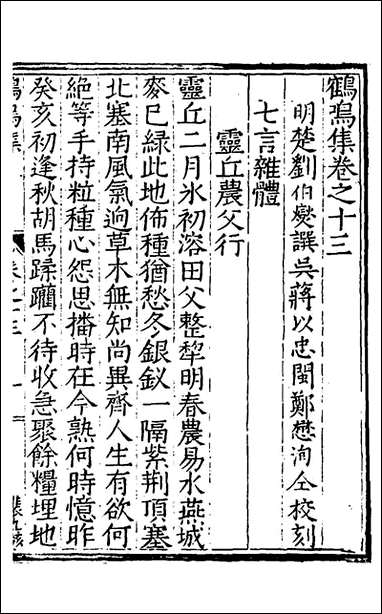 鶴鳴集卷之十三
明楚劉伯燮譔吳蔣以忠閩鄭懋洵仝校刻
七言雜體
靈丘農父行
靈丘二月氷初溶田父整犂明春農易水燕城
麥已綠此地佈種猶愁冬銀釵一隔紫荆頂塞
北塞南風氣逈草木無知尚異齊人生有欲何
絕等手持粒種心怨思播時在今熟何時憶昨
癸亥初逢秋胡馬蹂躪不待收急聚餘糧埋地